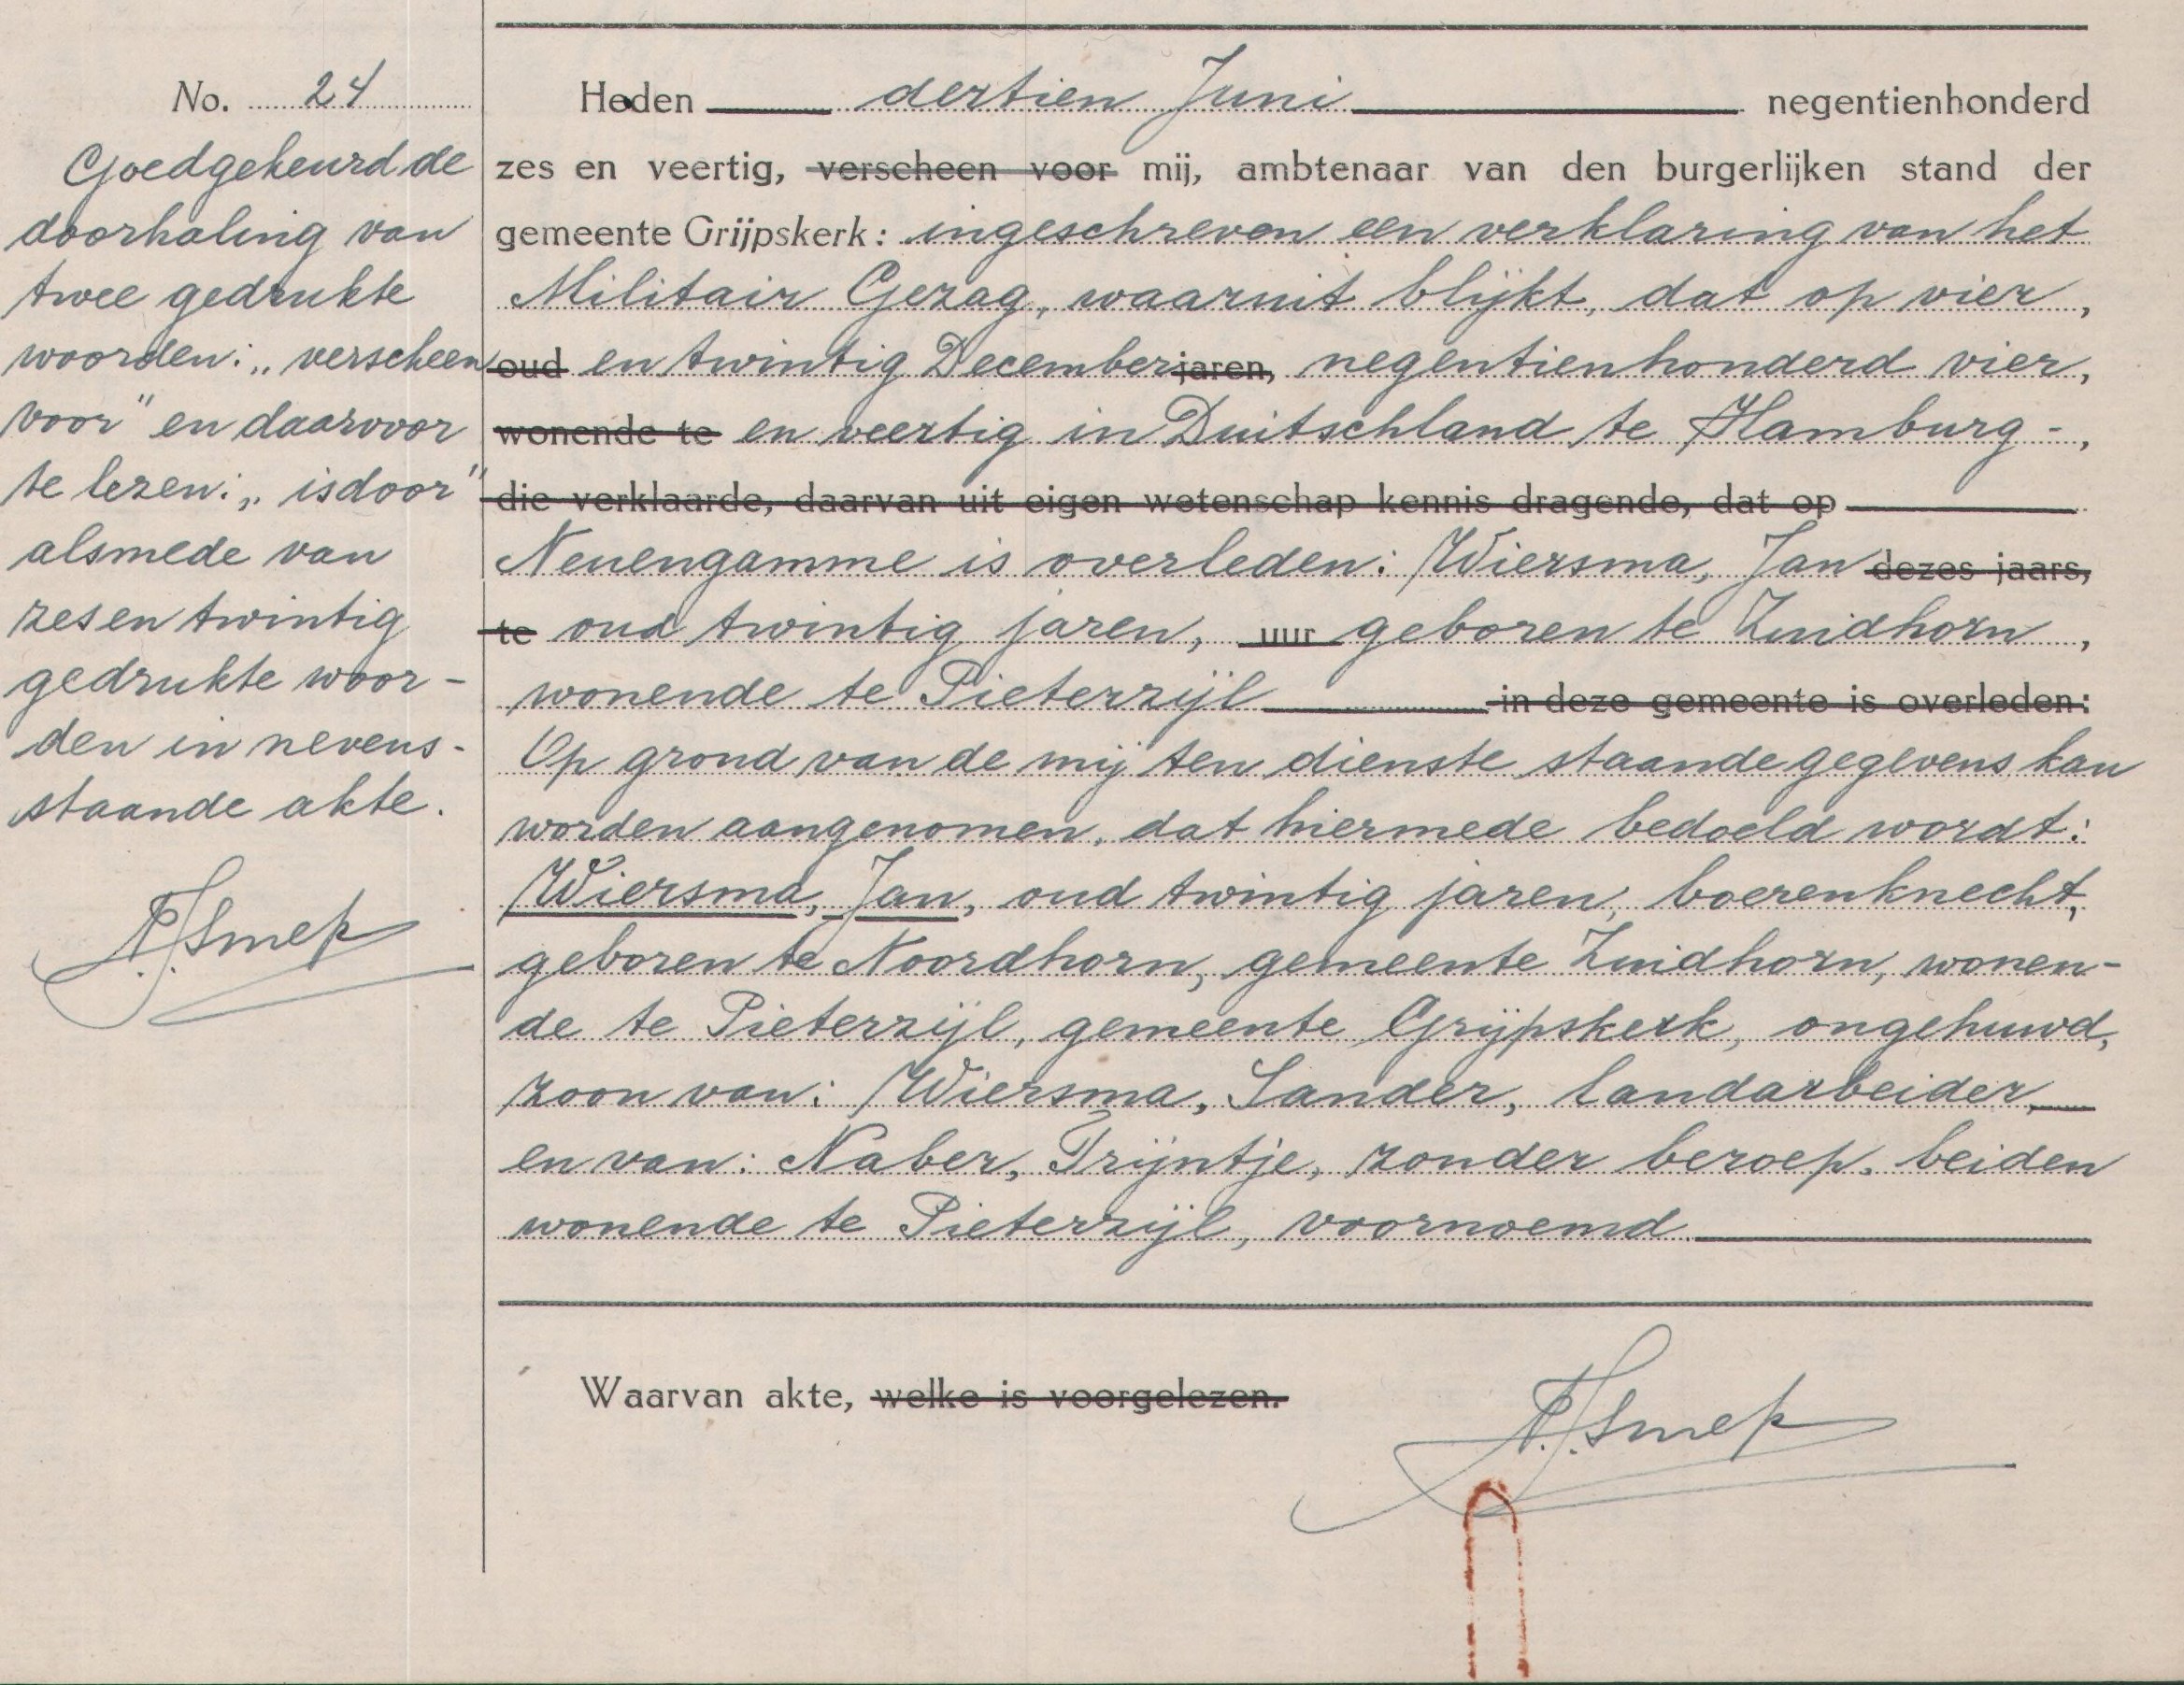 No. 24
Goedgekeurd de
doorhaling van
twee gedrukte
woorden: „verscheen
voor" en daarvoor
te lezen: „is door"
alsmede van
zes en twintig
gedrukte woor-
den in nevens-
staande akte.
Heden dertien Juni negentienhonderd
zes en veertig, verscheen voor mij, ambtenaar van den burgerlijken stand der
gemeente Grijpskerk: ingeschreven een verklaring van het
Militair Gezag, waaruit blijkt, dat op vier,
oud en twintig December jaren, negentienhonderd vier,
wonende te en veertig in Duitschland te Hamburg-,
die verklaarde, daarvan uit eigen wetenschap kennis dragende, dat op
Neuengamme is overleden: Wiersma, Jan dezes jaars,
te oud twintig jaren, uur geboren te Zuidhorn,
wonende te Pieterzijl in deze gemeente is overleden:
Op grond van de mij ten dienste staande gegevens kan
worden aangenomen, dat hiermede bedoeld wordt:
Wiersma, Jan, oud twintig jaren, boerenknecht,
geboren te Noordhorn, gemeente Zuidhorn, wonen-
de te Pieterzijl, gemeente Grijpskerk, ongehuwd,
zoon van: Wiersma, Sander, landarbeider,
en van: Naber, Trijntje, zonder beroep, beiden
wonende te Pieterzijl, voornoemd
Waarvan akte, welke is voorgelezen.